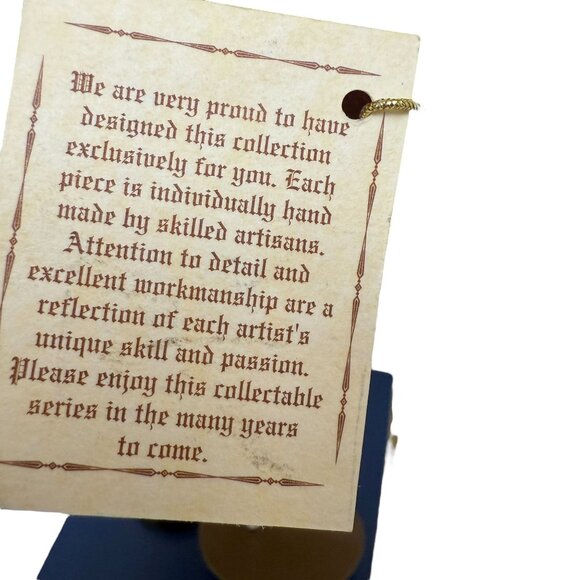 We are very proud to have
designed this collection
exclusively for you. Each
piece is individually hand
made by skilled artisans.
Attention to detail and
excellent workmanship are a
reflection of each artist's
unique skill and passion.
Please enjoy this collectable
series in the many years
to come.